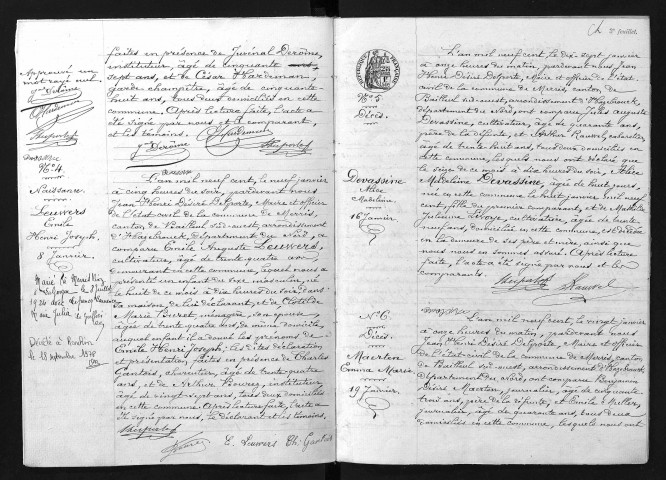 faites en présence de Juvénal Deroime,
instituteur, âgé de cinquante
sept ans, et de César Hardeman,
garde champêtre, âgé de cinquante
huit ans, tous deux domiciliés en cette
commune. Après lecture faite, l'acte a
été signé par nous, le comparant
et les témoins.
Approuvé un
mot rayé nul
N° 4.
Naissance
Leuwers
Emile
Henri Joseph,
8 Janvier.
L'an mil neuf cent, le neuf janvier
à cinq heures du soir, pardevant nous
Jean Henri Désiré Delporte, Maire et officier
de l'état civil de la commune de Merris,
canton de Bailleul sud-ouest, arrondissement
d'Hazebrouck, département du Nord, a
comparu Emile Auguste Leuwers,
cultivateur, âgé de trente quatre ans,
demeurant en cette commune, lequel nous a
présenté un enfant du sexe masculin, né
le huit de ce mois à dix heures du soir, en
sa maison, de lui déclarant, et de Clotilde
Marie Beret, ménagère, son épouse,
âgée de trente quatre ans, de même domicile,
auquel enfant il a donné les prénoms de
Emile Henri Joseph, les dites déclaration
et présentation, faites en présence de Charles
Gantois, charcutier, âgé de trente quatre
ans, et de Arthur instituteur
âgé de vingt sept ans, tous deux domiciliés
en cette commune. Après lecture faite, l'acte a
été signé par nous, le déclarant et les témoins.
E. Leuwers Ch. Gantois
2e feuillet.
N° 5
Décès.
Devassine
Alice
Madeleine
16 Janvier
L'an mil neuf cent, le dix-sept janvier
à onze heures du matin, pardevant nous, Jean
Henri Désiré Delporte, Maire et officier de l'état
civil de la commune de Merris, canton de
Bailleul sud-ouest, arrondissement d'Hazebrouck
département du Nord, ont comparu Jules Auguste
Devassine, cultivateur, âgé de quarante ans,
père de la défunte, et Arthur cabaretier,
âgé de trente huit ans, tous deux domiciliés en
cette commune, lesquels nous ont déclaré que
le seize de ce mois à dix heures du soir, Alice
Madeleine Devassine, âgée de huit jours,
née en cette commune le huit janvier mil neuf
cent, fille du premier comparant, et de Mathilde
Julienne cultivatrice, âgée de trente
neuf ans, domiciliés en cette commune, est décédée
en la demeure de ses père et mère, ainsi que
nous nous en sommes assuré. Après lecture
faite, l'acte a été signé par nous et les
comparants.
N° 6.
Décès.
Maerten
Emma Marie
19 Janvier.
L'an mil neuf cent, le vingt janvier
à onze heures du matin, pardevant nous
Jean Henri Désiré Delporte, Maire et officier
de l'état-civil de la commune de Merris, canton
de Bailleul sud-ouest, arrondissement d'Hazebrouck
département du Nord, ont comparu Benjamin
Désiré Maerten, journalier, âgé de cinquante
trois ans, père de la défunte, et Emile
journalier, âgé de quarante ans, tous deux
domiciliés en cette commune, lesquels nous ont